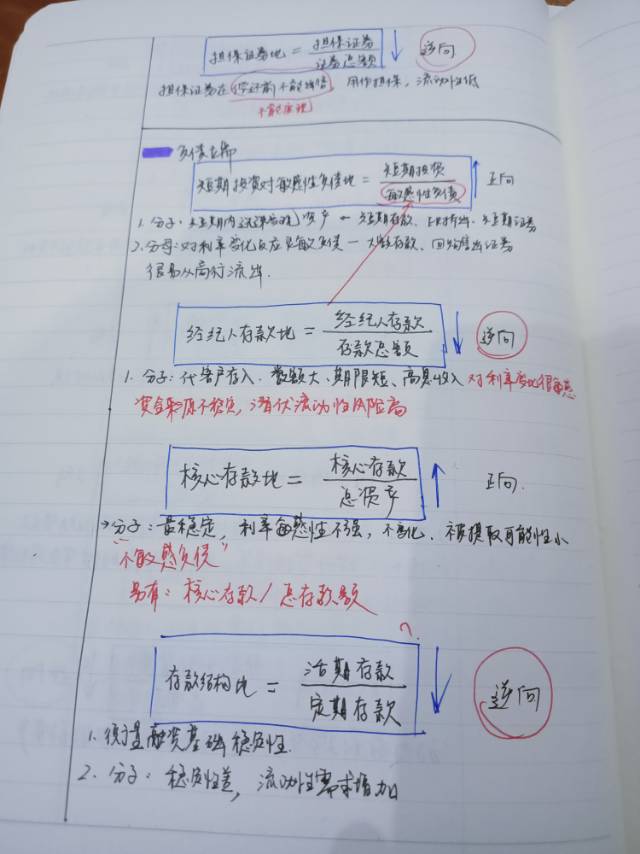 担保证券比 = 担保证券 / 证券总额 ↓ 逆向
担保证券在偿还前不能出售, 用作担保, 流动性低
不能变现
负债
短期投资对敏感性负债比 = 短期投资 / 敏感性负债 ↑ 正向
1. 分子: 短期内 资产 ← 短期存款、 拆出、短期证券
2. 分母: 对利率变化反应灵敏负债 — 大额存款、回购售出证券
很易从商行流出.
经纪人存款比 = 经纪人存款 / 存款总额 ↓ 逆向
1. 分子: 代客户存入、数额大、期限短、高息收入 对利率变化很敏感
资金来源不稳定, 潜伏流动性风险高
核心存款比 = 核心存款 / 总资产 ↑ 正向.
→ 分子: 最稳定, 利率敏感性不强, 不变化. 被提取可能性小
"不敏感负债"
另有: 核心存款 / 总存款额
?
存款结构比 = 活期存款 / 定期存款 ↓ 逆向
1. 衡量融资基础稳定性.
2. 分子: 稳定性差, 流动性需求增加